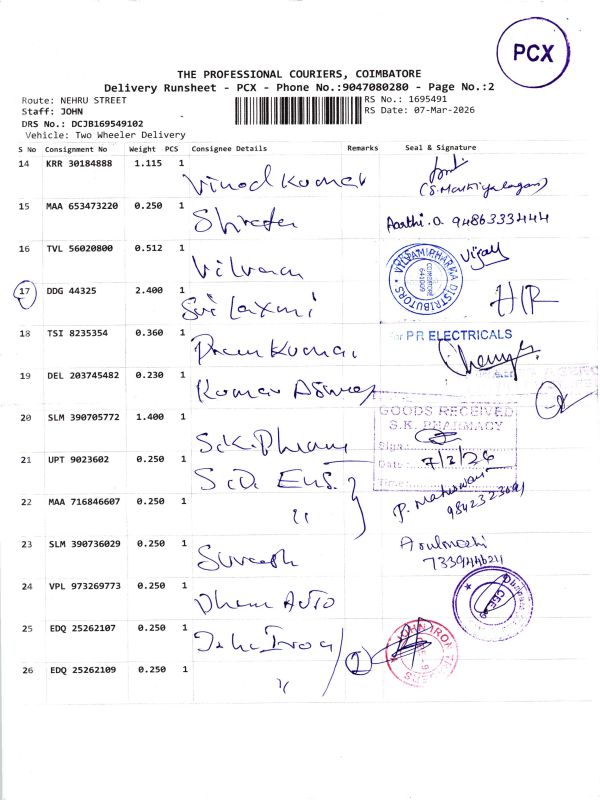 PCX
THE PROFESSIONAL COURIERS, COIMBATORE
Delivery Runsheet - PCX - Phone No.:9047080280 - Page No.:2
Route: NEHRU STREET
RS No.: 1695491
Staff: JOHN
RS Date: 07-Mar-2026
DRS No.: DCJB169549102
Vehicle: Two Wheeler Delivery
S No Consignment No Weight PCS Consignee Details Remarks Seal & Signature
14 KRR 30184888 1.115 1 Vinod Kumar
15 MAA 653473220 0.250 1 Aarthi.
16 TVL 56020800 0.512 1 Vijay
PHARMA DISTRIBUTORS
COIMBATORE
17 DDG 44325 2.400 1 Sri Laxmi H/R
18 TSI 8235354 0.360 1 Prem Kumar For P.R ELECTRICALS
19 DEL 203745482 0.230 1 Kumar
20 SLM 390705772 1.400 1 S.K. Pharm
GOODS RECEIVED
S.K. PHARMACY
Sign:
Date: 7/3/26
Time:
21 UPT 9023602 0.250 1
22 MAA 716846607 0.250 1 " P. Maheswari
23 SLM 390736029 0.250 1 Suresh
24 VPL 973269773 0.250 1 Auto
25 EDQ 25262107 0.250 1 2
JOHN IRON
26 EDQ 25262109 0.250 1 "